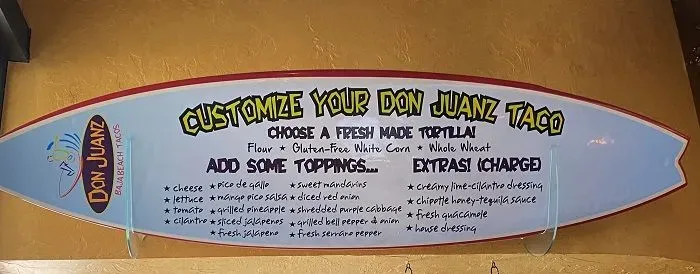 DON JUANZ
BAJA BEACH TACOS
CUSTOMIZE YOUR DON JUANZ TACO
CHOOSE A FRESH MADE TORTILLA!
Flour ★ Gluten-Free White Corn ★ Whole Wheat
ADD SOME TOPPINGS...
★ cheese ★ pico de gallo ★ sweet mandarins
★ lettuce ★ mango pico salsa ★ diced red onion
★ tomato ★ grilled pineapple ★ shredded purple cabbage
★ cilantro ★ sliced jalapenos ★ grilled bell pepper & onion
★ fresh jalapeno ★ fresh serrano pepper
EXTRAS! (CHARGE)
★ creamy lime-cilantro dressing
★ chipotle honey-tequila sauce
★ fresh guacamole
★ house dressing